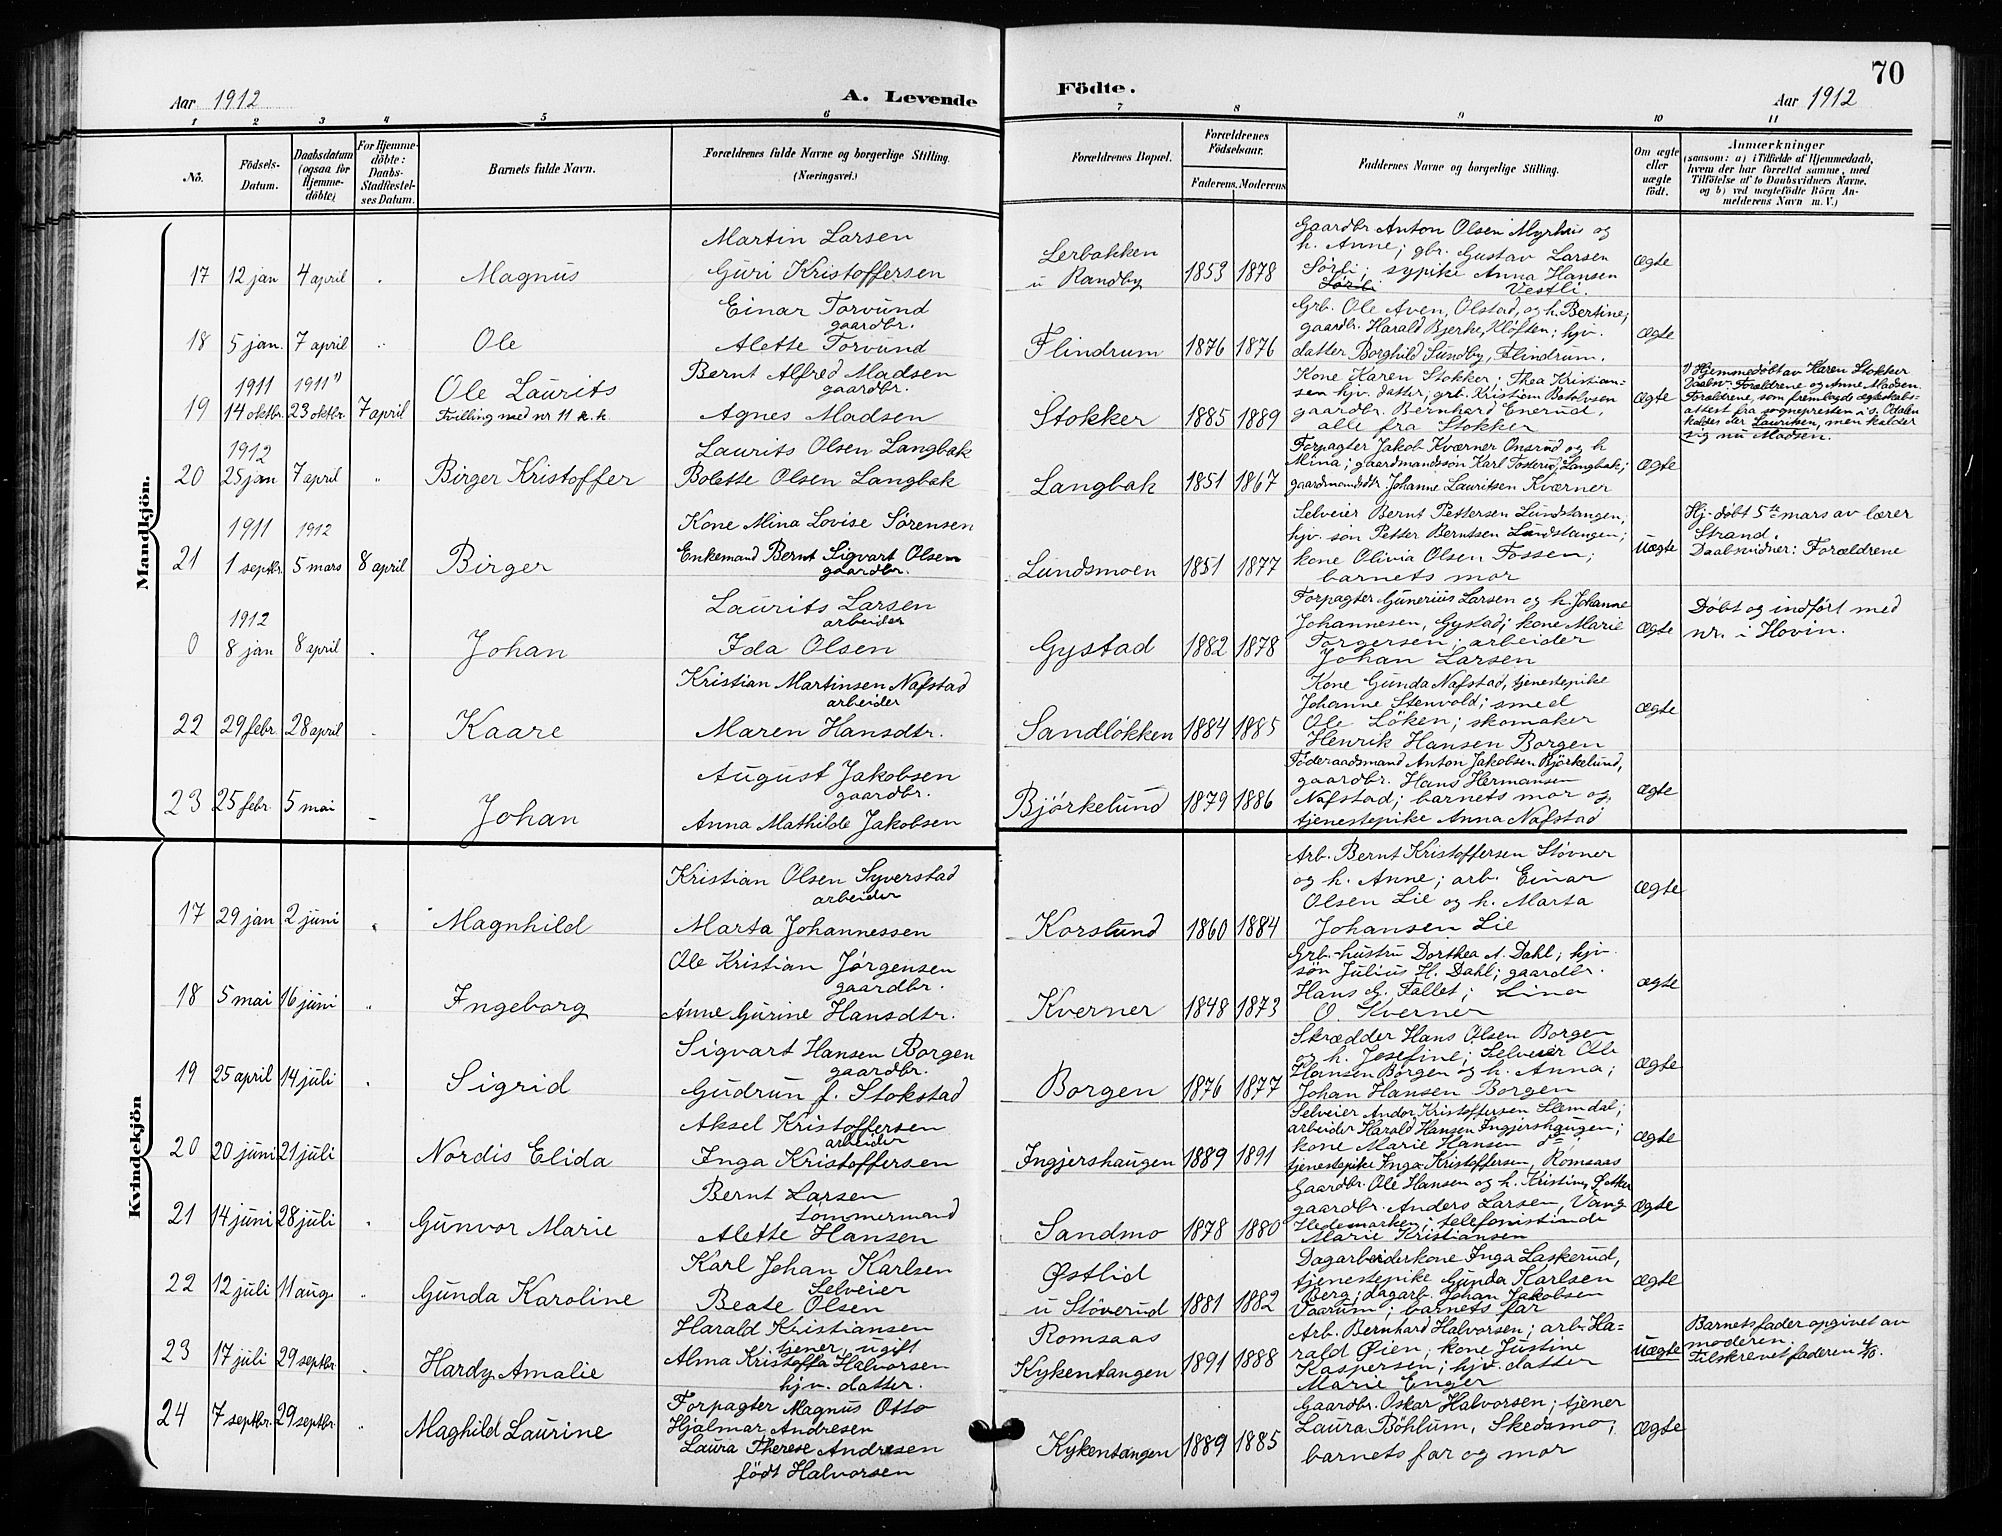 70
Aar 1912
A. Levende
Födte.
Aar 1912
1 2 3 4 5 6 7 8 9 10 11
No.
Födsels-Datum.
Daabsdatum (ogsaa for Hjemmedöbte)
For Hjemmedöbte: Daabs-Stadfæstelses Datum.
Barnets fulde Navn.
Forældrenes fulde Navne og borgerlige Stilling.
(Næringsvei.)
Forældrenes Bopæl.
Forældrenes Födselsaar.
Faderens. Moderens
Faddernes Navne og borgerlige Stilling.
Om ægte eller uægte födt.
Anmærkninger
(saasom: a) i Tilfælde af Hjemmedaab,
hvem der har forrettet samme, med
Tilföielse af to Daabsvidners Navne,
og b) ved uægtefödte Börn An-
melderens Navn m. V.)
Mandkjön.
Martin Larsen
17 12 jan 4 april " Magnus Guri Kristoffersen
Lerbakken
u Randby 1853 1878
Gaardbr Anton Olsen Myrhus og
h. Anne; gbr. Gustav Larsen
Sørli; sypike Anna Hansen
Vestli.
ægte
Einar Torvund
gaardbr.
18 5 jan. 7 april " Ole Alette Torvund
Flindrum 1876 1876
Grb. Ole Aven, Olstad, og h. Bertine;
gaardbr. Harald Bjerke, Kløften; hjv.
datter Borghild Sundby, Flindrum.
ægte
1911 1911 1)
19 14 oktbr. 23 oktbr. 7 april
Ole Laurits
Tvilling med nr 11 k.k.
Bernt Alfred Madsen
gaardbr.
Agnes Madsen
Stokker 1885 1889
Kone Karen Stokker; Thea Kristian=
sen hjv. datter, grb. Kristian
gaardbr. Bernhard Enerud,
alle fra Stokker
ægte
1) Hjemmedøbt av Karen Stokker
Daabv. Forældrene og Anne Madsen.
Forældrene, som fremlagde ægteskabs-
attest fra sognepresten i s. Odalen
kaldes der Lauritsen, men kalder
sig nu Madsen.
1912
20 25 jan 7 april " Birger Kristoffer
Laurits Olsen Langbak
Bolette Olsen Langbak
Langbak 1851 1867
Forpagter Jakob Kværner Onsrud og h
Mina; gaardmandssøn Karl Tosterud, Langbak;
gaardmandsdtr Johanne Lauritsen Kværner
ægte
1911 1912
21 1 septbr. 5 mars 8 april Birger
Kone Mina Lovise Sørensen
Enkemand Bernt Sigvart Olsen
gaardbr.
Lundsmoen 1851 1877
Selveier Bernt Pettersen Lundstangen;
hjv. søn Petter Berntsen Lundstangen;
kone Olivia Olsen Fossen;
barnets mor
uægte
Hj-døbt 5te mars av lærer
Strand.
Daabsvidner: Forældrene
1912
0 8 jan 8 april " Johan
Laurits Larsen
arbeider
Ida Olsen
Gystad 1882 1878
Forpagter Gunerius Larsen og h. Johanne
Johannesen, Gystad; kone Marie
Torgersen; arbeider
Johan Larsen
ægte
Døbt og indført med
nr. i Hovin.
22 29 febr 28 april " Kaare
Kristian Martinsen Nafstad
arbeider
Maren Hansdtr.
Sandløkken 1884 1885
Kone Gunda Nafstad, tjenestepike
Johanne Stenvold; smed
Ole Løken; skomaker
Henrik Hansen Borgen
ægte
23 25 febr. 5 mai - Johan
August Jakobsen
gaardbr.
Anna Mathilde Jakobsen
Bjørkelund 1879 1886
Föderaadsmand Anton Jakobsen Björkelund,
gaardbr. Hans Hermansen
Nafstad; barnets mor og
tjenestepike Anna Nafstad
ægte
Kvindekjön
17 29 jan 2 juni " Magnhild
Kristian Olsen Syverstad
arbeider
Marta Johannessen
Korslund 1860 1884
Arb. Bernt Kristoffersen Støvner
og h. Anne; arb. Einar
Olsen Lie og h. Marta
Johansen Lie
ægte
18 5 mai 16 juni " Ingeborg
Ole Kristian Jørgensen
gaardbr.
Anne Gurine Hansdtr.
Kverner 1848 1873
Grb.-hustru Dorthea A. Dahl; hjv.
søn Julius H. Dahl; gaardbr.
Hans G. Fallet; Lina
O. Kverner
ægte
19 25 april 14 juli " Sigrid
Sigvart Hansen Borgen
gaardbr.
Gudrun f. Stokstad
Borgen 1876 1877
Skrædder Hans Olsen Borgen
og h. Josefine; Selveier Ole
Hansen Borgen og h. Anna;
Johan Hansen Borgen
ægte
20 20 juni 21 juli " Nordis Elida
Aksel Kristoffersen
arbeider
Inga Kristoffersen
Ingjershaugen 1889 1891
Selveier Andor Kristoffersen Slemdal;
arbeider Harald Hansen Ingjershaugen;
kone Marie Hansen
tjenestepike Inga Kristoffersen, Romsaas
ægte
21 14 juni 28 juli " Gunvor Marie
Bernt Larsen
tømmermand
Alette Hansen
Sandmo 1878 1880
Gaardbr. Ole Hansen og h. Kristine,
gaardbr. Anders Larsen, Vang
Hedemarken; telefonistinde
Marie Kristiansen
ægte
22 12 juli 11 aug. " Gunda Karoline
Karl Johan Karlsen
Selveier
Beate Olsen
Østlid
u Støverud 1881 1882
Dagarbeiderkone Inga Laskerud,
tjenestepike Gunda Karlsen
Berg; dagarb. Johan Jakobsen
Vaarum; barnets far
ægte
23 17 juli 29 septbr. " Hardy Amalie
Harald Kristiansen
tjener, ugift
Alma Kristoffa Halvorsen
hjv. datter.
Romsaas
Kykentangen 1891 1888
Arb. Bernhard Halvorsen; arb. Ha=
rald Øien; kone Justine
Kaspersen; hjv. datter
Marie Enger
uægte
Barnets fader opgivet av
moderen.
Tilskrevet faderen 4/10.
24 7 septbr. 29 septbr " Maghild Laurine
Forpagter Magnus Otto
Hjalmar Andresen
Laura Therese Andresen
født Halvorsen
Kykentangen 1889 1885
Gaardbr. Oskar Halvorsen; tjener
Laura Böhlum, Skedsmo;
barnets far og mor
ægte